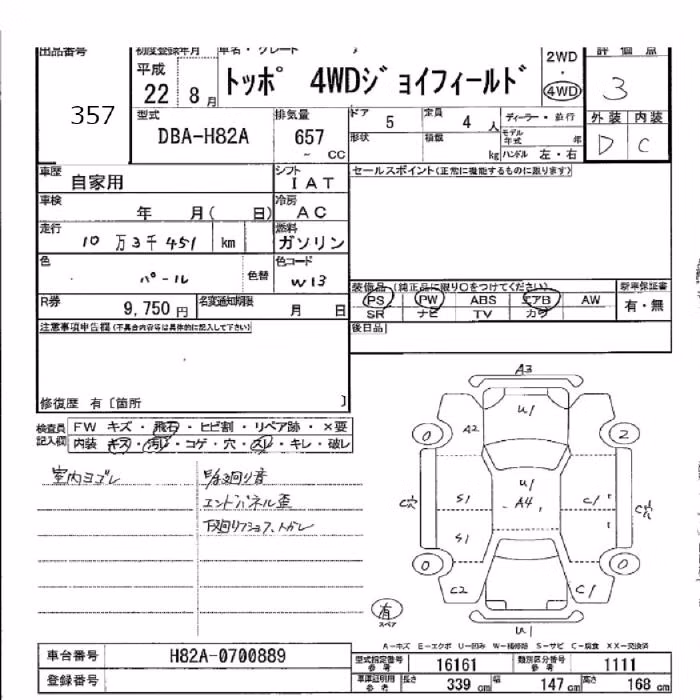 出品番号
357
初度登録年月
平成
22 8月
車名・グレード
トッポ 4WDジョイフィールド
2WD
・
4WD
評価点
3
型式
DBA-H82A
排気量
657
cc
ドア
5
定員
4 人
形状
積載
kg
ディーラー・並行
モデル年式 年
ハンドル 左・右
外装 内装
D C
車歴
自家用
シフト
IAT
セールスポイント(正常に機能するものに限ります)
車検
年 月( 日)
冷房
AC
走行
10万3千451 km
燃料
ガソリン
色
パール
色替
色コード
W13
装備品(純正品に限り○をつけてください)
PS PW ABS エアB AW
SR ナビ TV カワ
新車保証書
有・無
R券
9,750円
名変通知期限
月 日
後日品
注意事項申告欄(不具合内容等は具体的に記入して下さい)
修復歴 有〔箇所 〕
検査員記入欄
FW キズ・飛石・ヒビ割・リペア跡・×要
内装 キズ・汚レ・コゲ・穴・スレ・キレ・破レ
室内ヨゴレ
エンドパネル歪
A3
U1
0
A2
2
C穴
S1
U1
A4
C1
C穴
S1
0
0
C2
C1
有
スペア
U1
A−キズ E−エクボ U−凹み W−補修跡 S−サビ C−腐食 XX−交換済
車台番号
H82A-0700889
型式指定番号 参考
16161
類別区分番号 参考
1111
登録番号
車庫証明用 参考
長さ 339 cm
幅 147 cm
高さ 168 cm